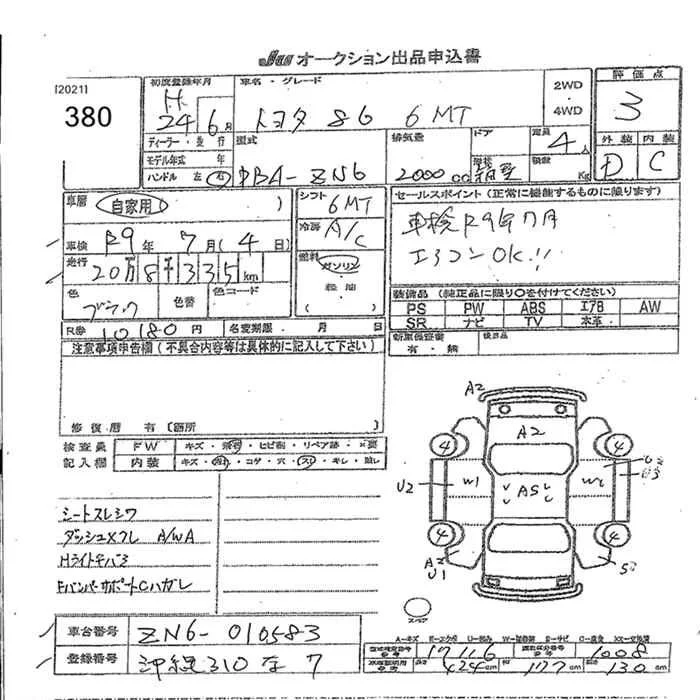 JU オークション出品申込書
[2021]
380
初度登録年月 H 24年 6月
車名・グレード トヨタ 86 6MT
2WD ・ 4WD
評価点 3
ディーラー・並行
モデル年式 年
ハンドル 左 右
型式 DBA-ZN6
排気量 2000 cc
ドア
定員 4人
積載 Kg
外装 D 内装 C
車歴 自家用 ( )
シフト 6MT
セールスポイント (正常に機能するものに限ります)
車検 R9年7月
エアコンOK!!
車検 R9年 7月 (4日)
冷房 A/C
走行 20万8千335km
燃料 ガソリン 軽油 ( )
色 ブラック 色替 色コード
装備品 (純正品に限り○を付けてください)
PS PW ABS エアB AW
SR ナビ TV 本革
R券 10180円 名変期限 ・ 月 日
新車保証書 有・無 検査品
注意事項申告欄 (不具合内容等は具体的に記入して下さい)
修復歴 有 [箇所 ]
検査員 FW キズ・飛石・ヒビ割・リペア跡・×要
記入欄 内装 キズ・コゲ・穴・スレ・キレ
シートスレシワ
ダッシュXフレ A/WA
Hライトキバミ
FバンパーサポートCハガレ
A2
A2
4 4
U2 W1 A5 W2 U2 U3
4 4
A2 U1 S2
スペア
車台番号 ZN6-010583
登録番号 沖縄 310 な 7
A-キズ
17116 1008
424cm 177cm 130cm